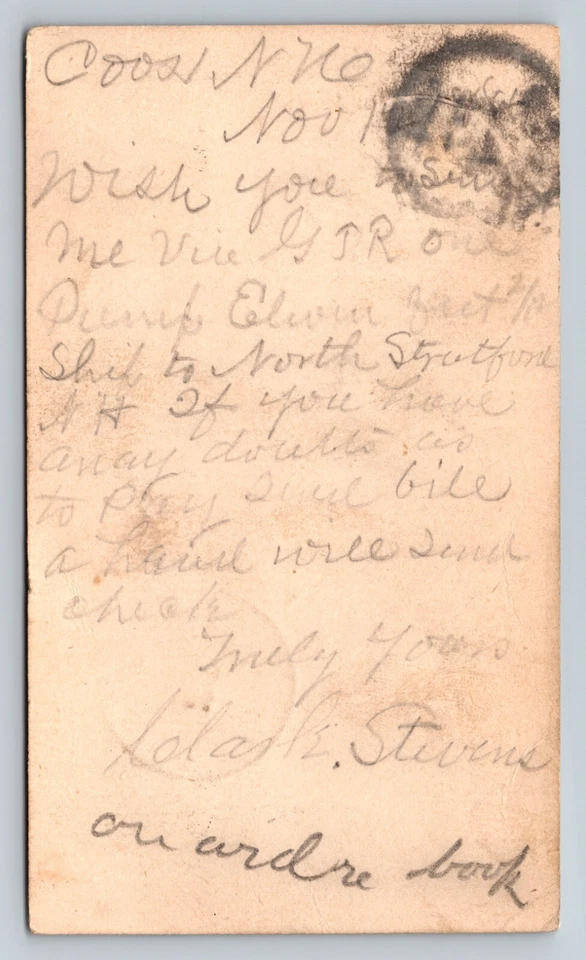 Coos N H
Nov 1
Wish you to send
me via G T R one
Pump
Ship to North Stratford
N H If you have
anay doutts as
to pay send bill
a hand will send
check
Truly Yours
Clark Stevens
on ordre book